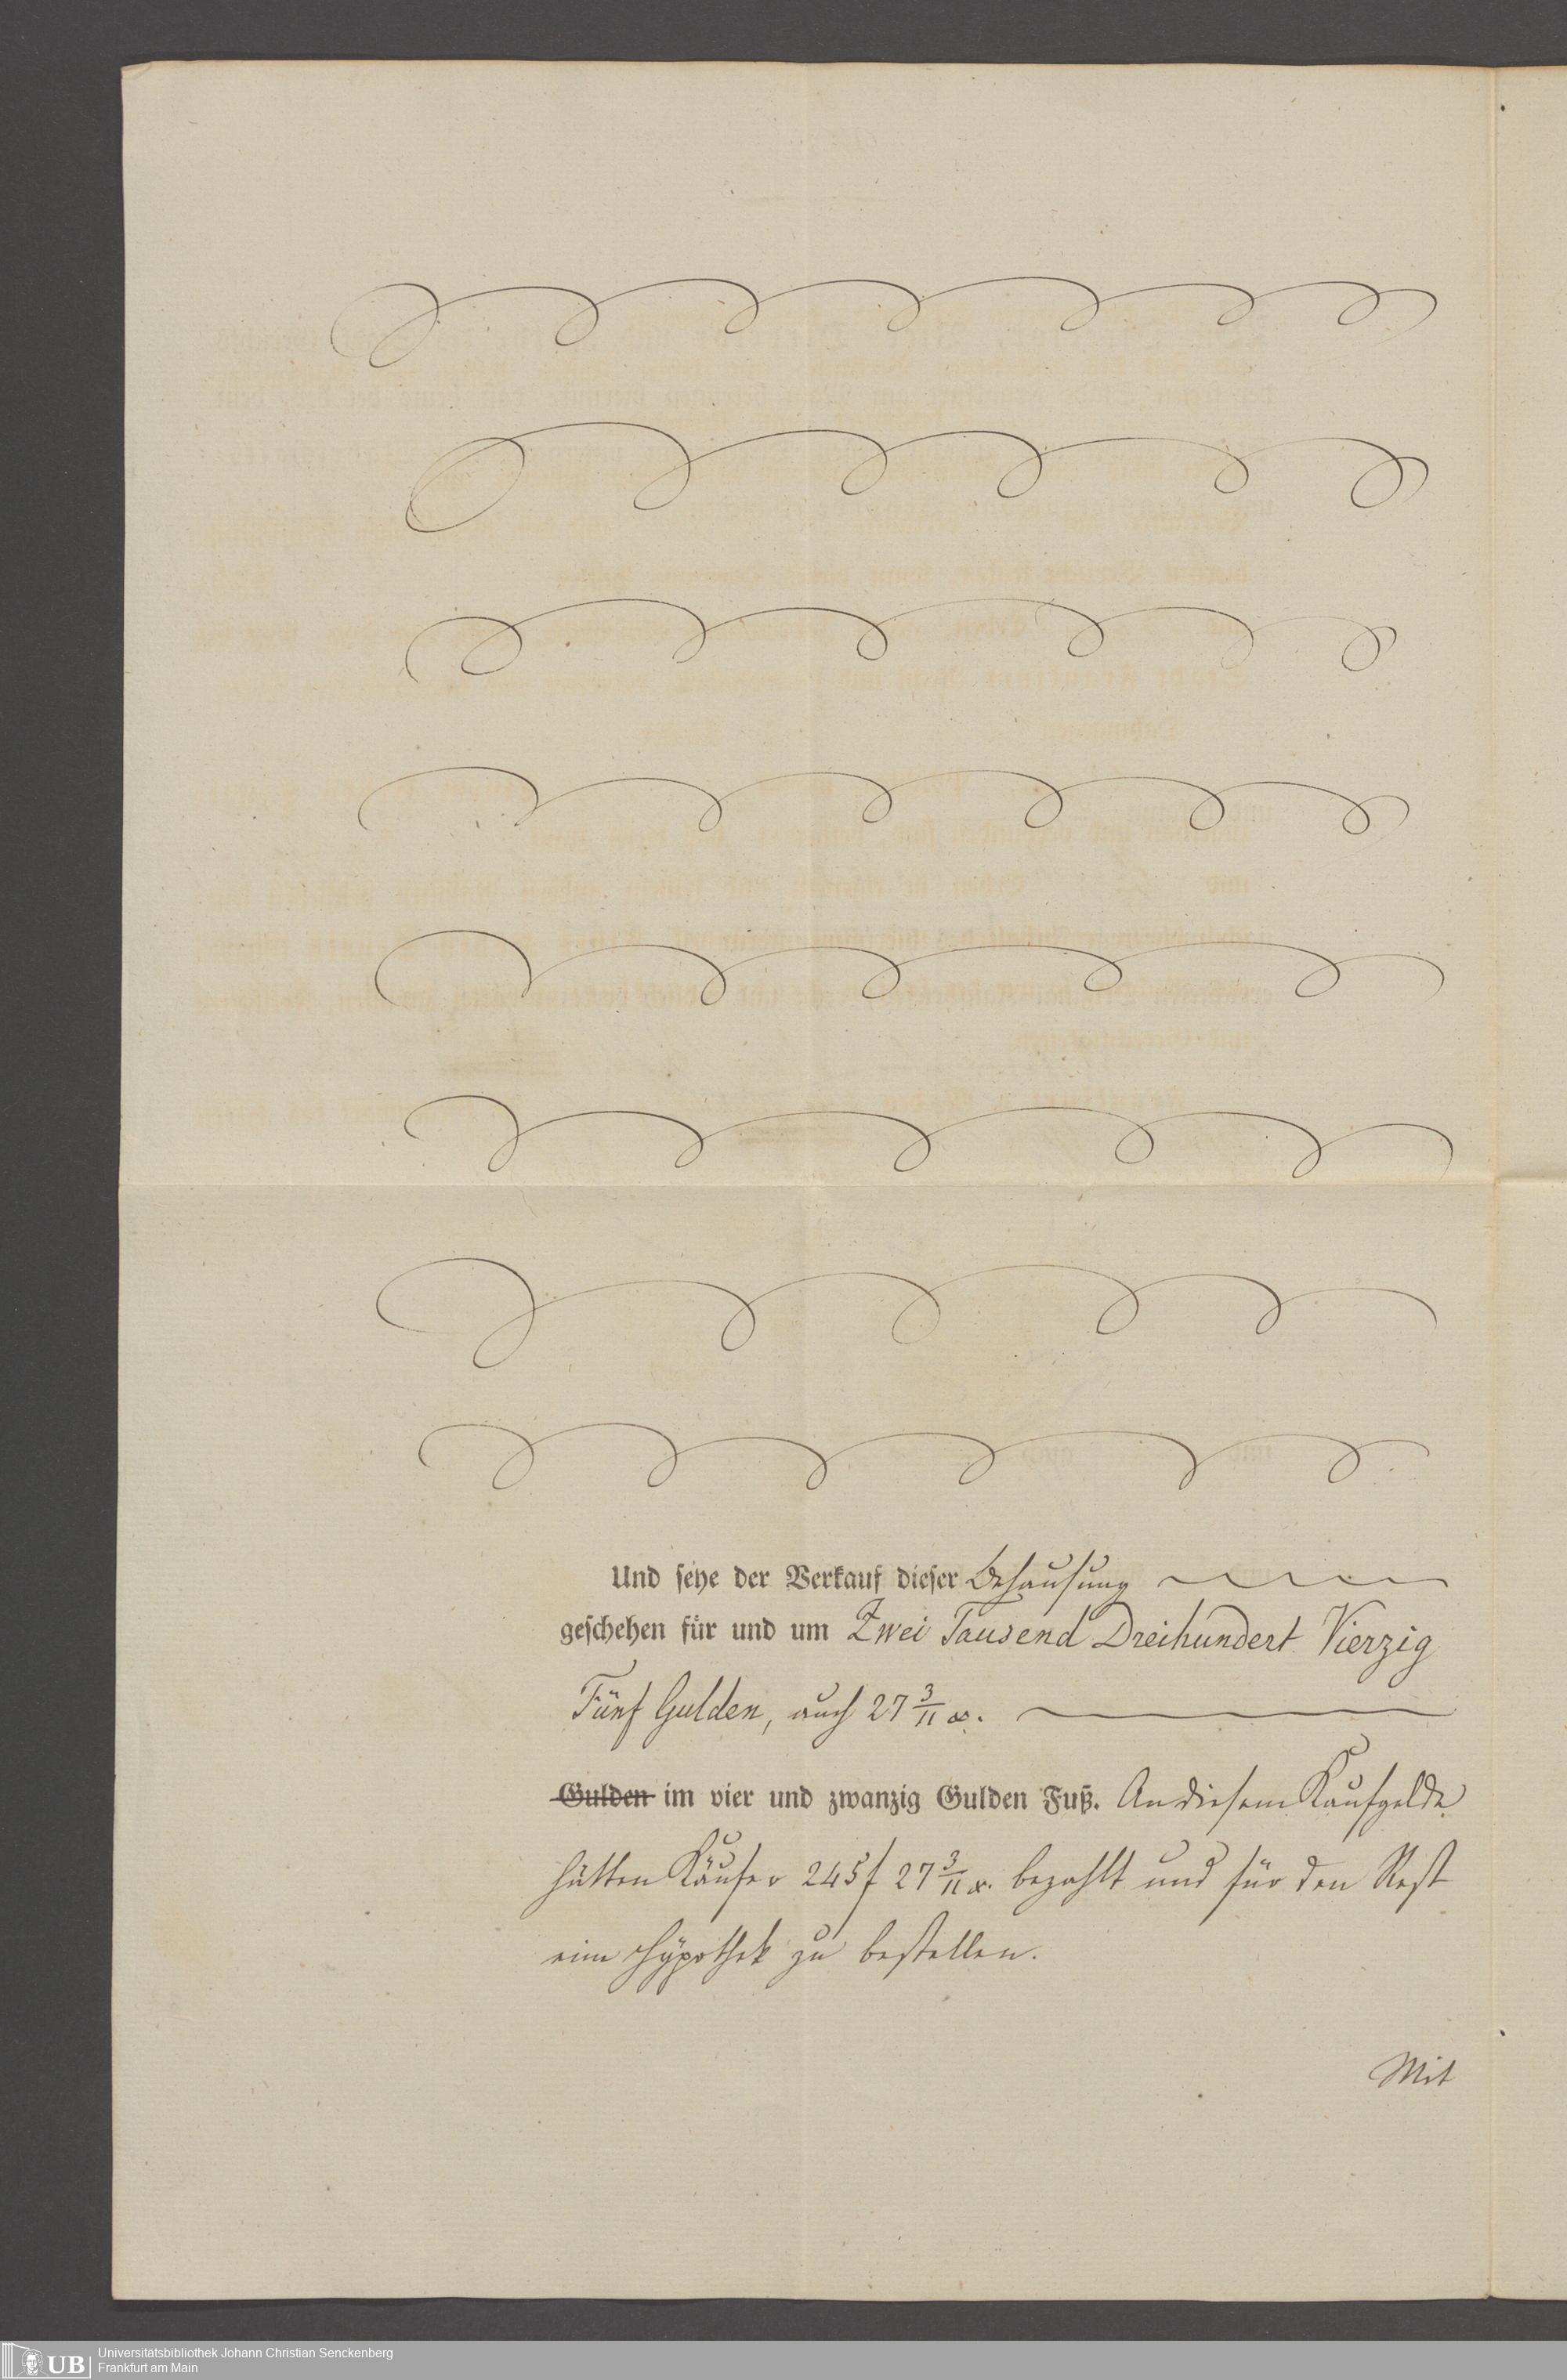 Und seye der Verkauf dieser Behausung
geschehen für und um Zwei Tausend Dreihundert Vierzig
Fünf Gulden, auch 27 3/11 x.
Gulden im vier und zwanzig Gulden Fuß. An diesem Kaufgelde
hätten Käufer 245 f 27 3/11 x. bezahlt und für den Rest
eine Hÿpothek zu bestellen.
Mit
UB Universitätsbibliothek Johann Christian Senckenberg
Frankfurt am Main